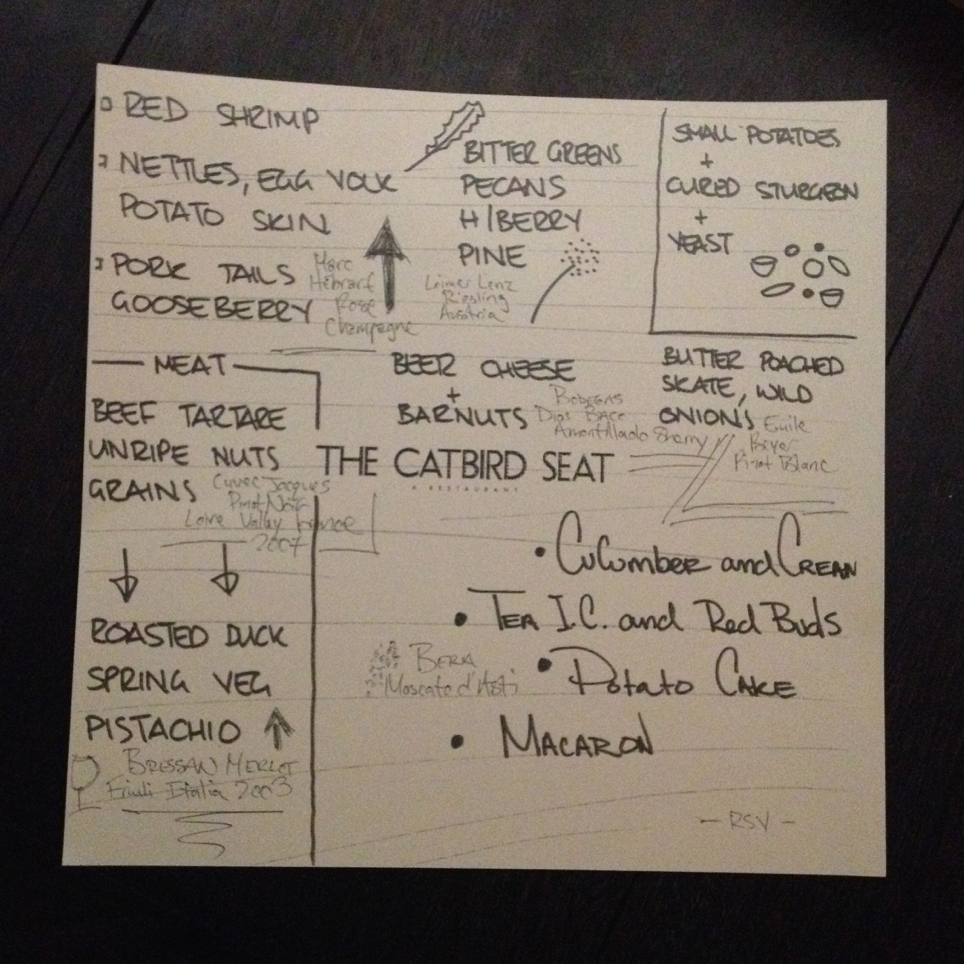 RED SHRIMP
NETTLES, EGG YOLK
POTATO SKIN
PORK TAILS
GOOSEBERRY
Marc
Hébrart
Rosé
Champagne
BITTER GREENS
PECANS
H/BERRY
PINE
Leimer Lenz
Riesling
Austria
SMALL POTATOES
+
CURED STURGEON
+
YEAST
MEAT
BEEF TARTARE
UNRIPE NUTS
GRAINS
Cuvee Jacques
Pinot Noir
Loire Valley France
2007
BEER CHEESE
+
BARNUTS
Bodegas
Dios Baco
Amontillado Sherry
BUTTER POACHED
SKATE, WILD
ONIONS
Emile
Beyer
Pinot Blanc
THE CATBIRD SEAT
A RESTAURANT
ROASTED DUCK
SPRING VEG
PISTACHIO
BRESSAN MERLOT
Friuli Italia 2003
• Cucumber and Cream
• Tea I.C. and Red Buds
BERA
Moscato d'Asti
• Potato Cake
• Macaron
- RSV -